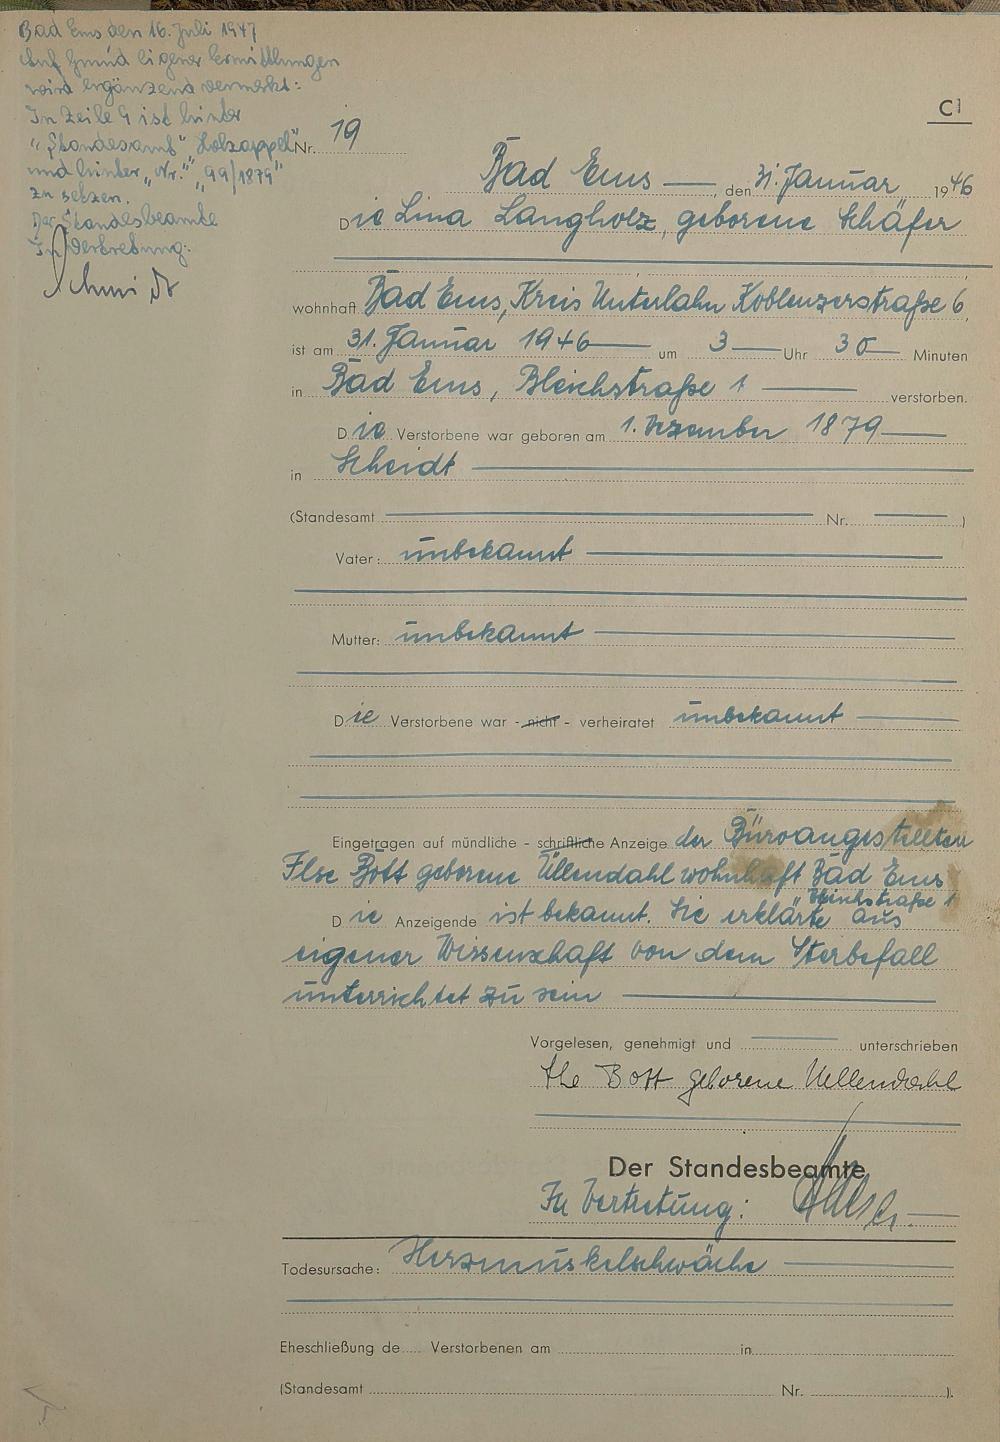 Bad Ems den 16. Juli 1947
Auf Grund eigener Ermittlungen
wird ergänzend vermerkt:
In Zeile 9 ist hinter
"Standesamt" Holzappel"
und hinter "Nr." "99/1879"
zu setzen.
Der Standesbeamte
In Vertretung:
Schmidt
C1
Nr. 19
Bad Ems, den 31. Januar 1946
Die Lina Langholz, geborene Schäfer
wohnhaft Bad Ems, Kreis Unterlahn Koblenzerstraße 6,
ist am 31. Januar 1946 um 3 Uhr 30 Minuten
in Bad Ems, Bleichstraße 1 verstorben.
Die Verstorbene war geboren am 1. Dezember 1879
in Scheidt
(Standesamt Nr. )
Vater: unbekannt
Mutter: unbekannt
Die Verstorbene war - nicht - verheiratet unbekannt
Eingetragen auf mündliche - schriftliche Anzeige der Büroangestellten
Ilse Bott geborene Üllendahl wohnhaft Bad Ems
Bleichstraße 1
Die Anzeigende ist bekannt. Sie erklärte aus
eigener Wissenschaft von dem Sterbefall
unterrichtet zu sein
Vorgelesen, genehmigt und unterschrieben
Ilse Bott geborene Uellendahl
Der Standesbeamte
In Vertretung:
Todesursache: Herzmuskelschwäche
Eheschließung de Verstorbenen am in
(Standesamt Nr. ).